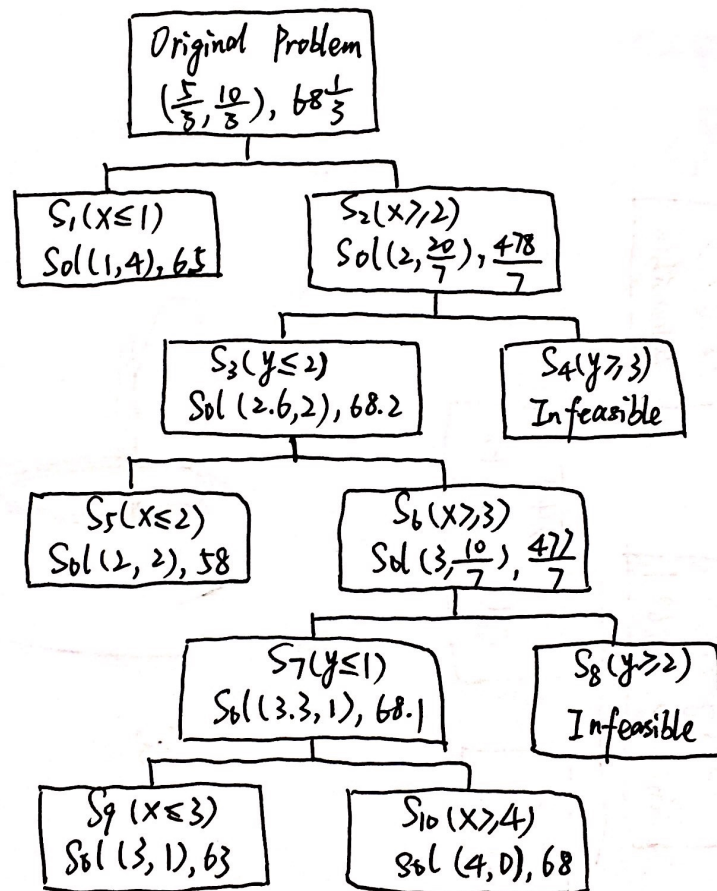 Original Problem
(5/3, 10/3), 68 1/3
S₁(x≤1)
Sol(1,4), 65
S₂(x≥2)
Sol(2, 20/7), 478/7
S₃(y≤2)
Sol(2.6,2), 68.2
S₄(y≥3)
Infeasible
S₅(x≤2)
Sol(2,2), 58
S₆(x≥3)
Sol(3, 10/7), 477/7
S₇(y≤1)
Sol(3.3,1), 68.1
S₈(y≥2)
Infeasible
S₉(x≤3)
Sol(3,1), 63
S₁₀(x≥4)
Sol(4,0), 68